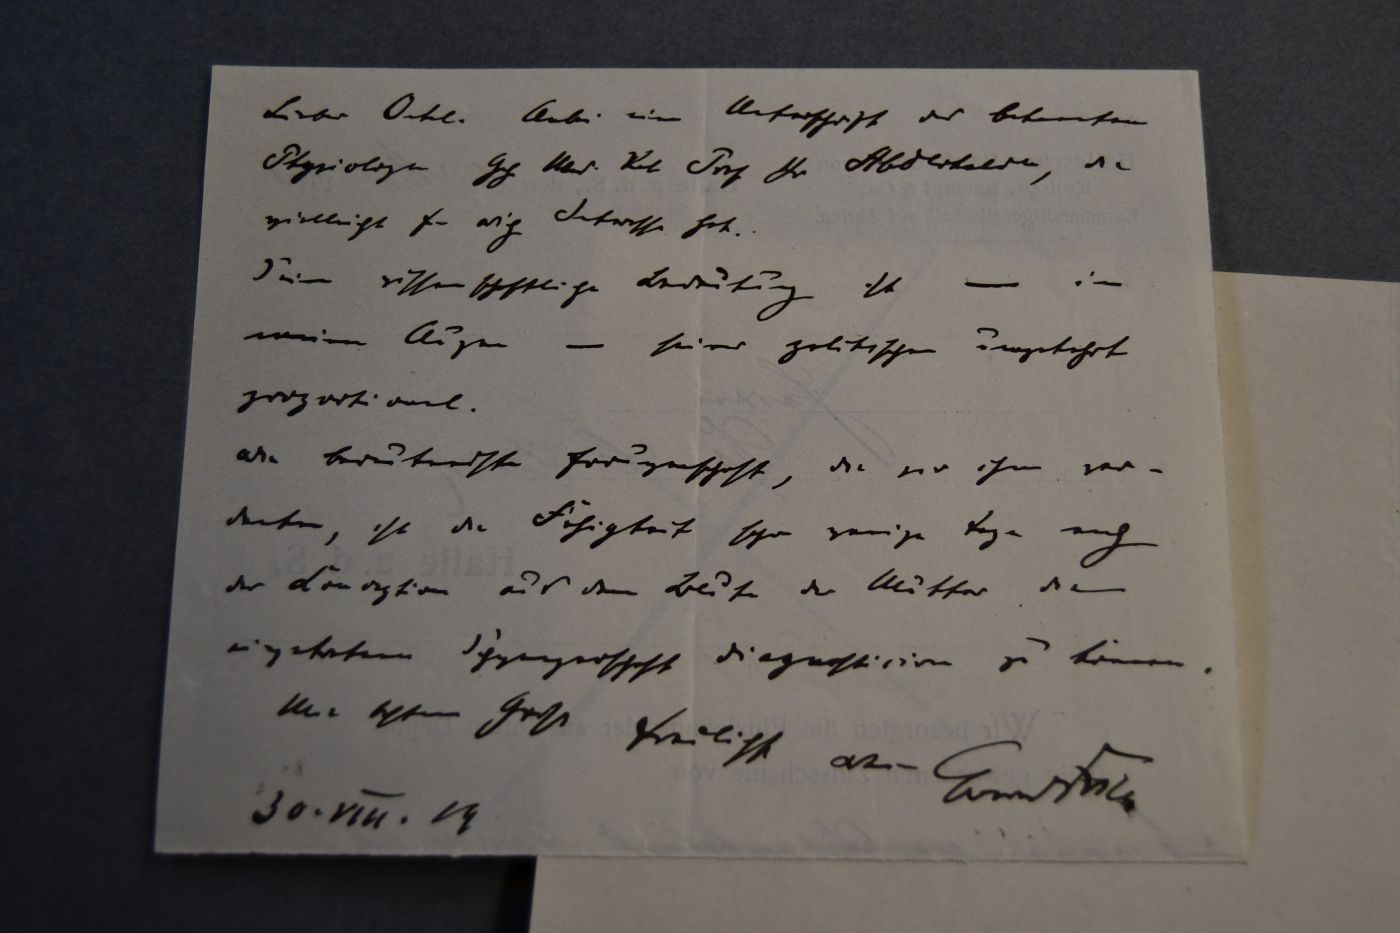 Lieber Onkel. Anbei eine Unterschrift des bekannten
Physiologen Geh Med. Rat Prof Dr Abderhalden, die
vielleicht für dich Interesse hat.
Seine wissenschaftliche Bedeutung ist — in
meinen Augen — seiner politischen umgekehrt
proportional.
Die bedeutendste Errungenschaft, die wir ihm ver-
danken, ist die Fähigkeit schon wenige Tage nach
der Conception aus dem Blute der Mutter die
eingetretene Schwangerschaft diagnosticieren zu können.
Mit besten Grüßen
30.VIII.19
Halle a. d. S.
Wir besorgten die